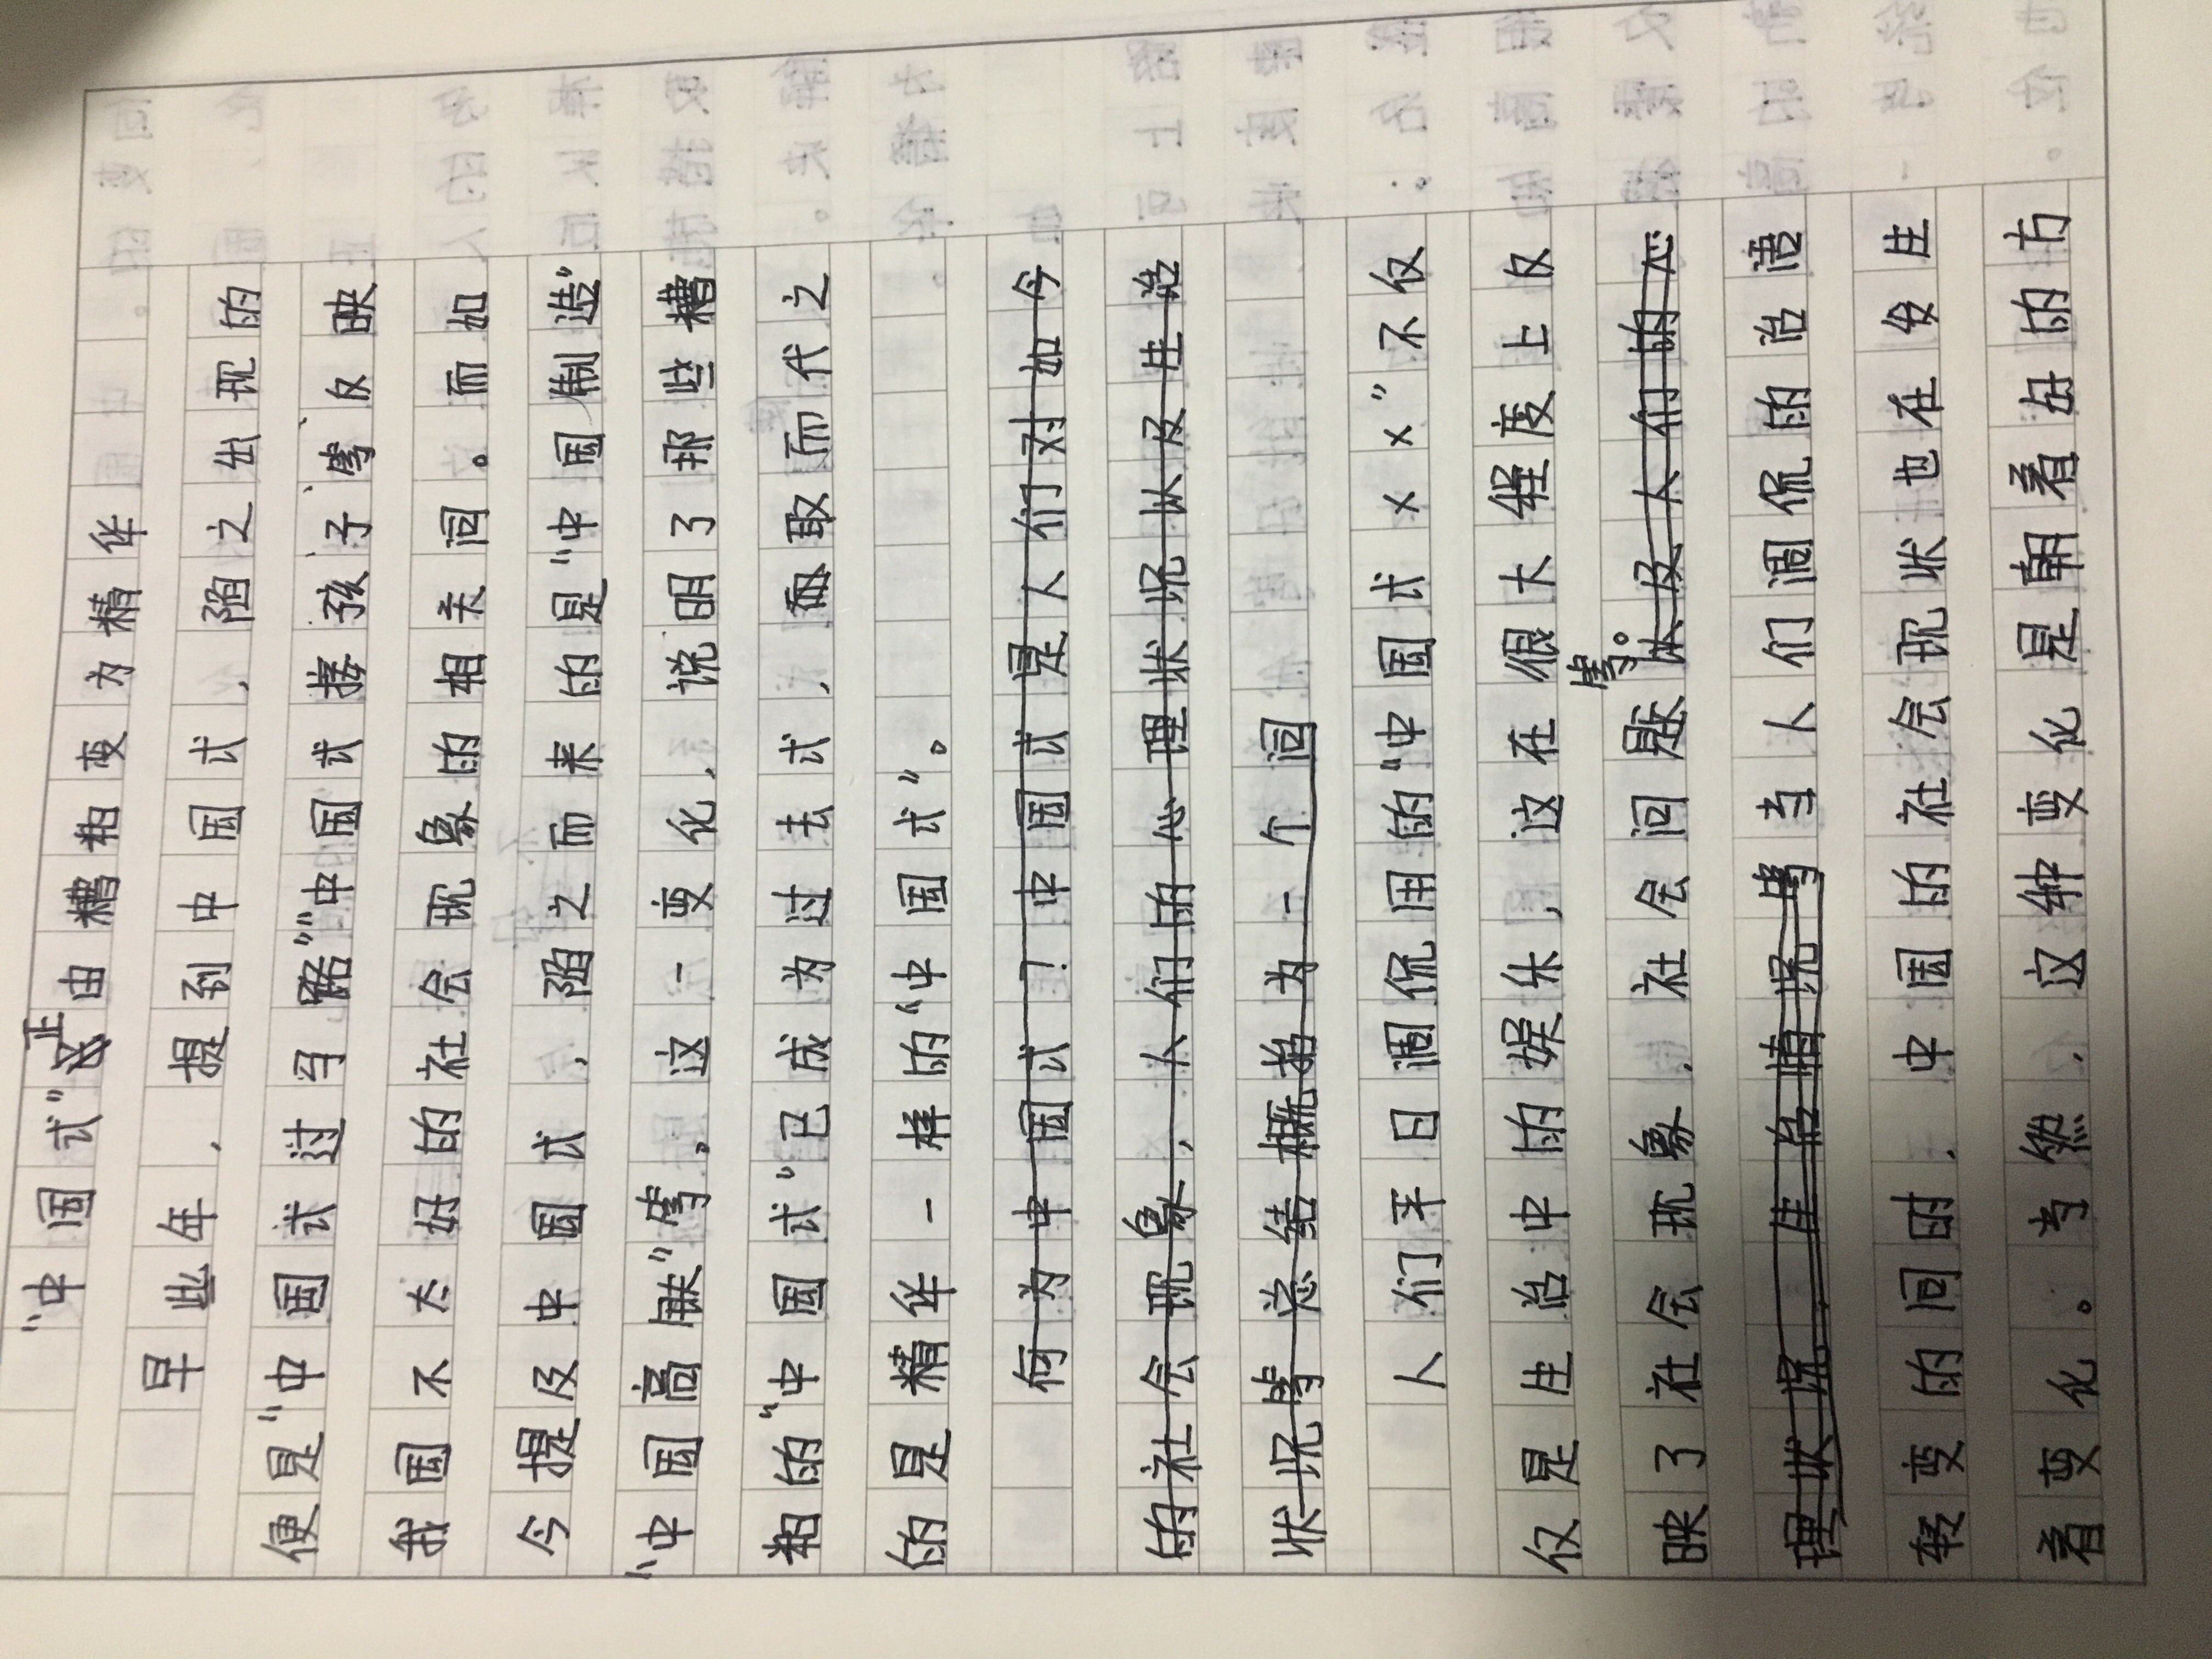 “中国式”正由糟粕变为精华
早些年，提到中国式，随之出现的
便是“中国式过马路”“中国式接孩子”等，反映
我国不太好的社会现象的相关词。而如
今提及中国式，随之而来的是“中国制造”
“中国高铁”等。这一变化，说明了那些糟
粕的“中国式”已成为过去式，而取而代之
的是精华一样的“中国式”。
何为中国式？中国式是人们对如今
的社会现象，人们的心理状况以及生活
状况等总结概括为一个词
人们平日调侃用的“中国式××”不仅
仅是生活中的娱乐，这在很大程度上反
映了社会现象，社会问题等。以及人们的心
理状况，生活情况等当人们调侃的话语
转变的同时，中国的社会现状也在发生
着变化。当然，这种变化是朝着好的方